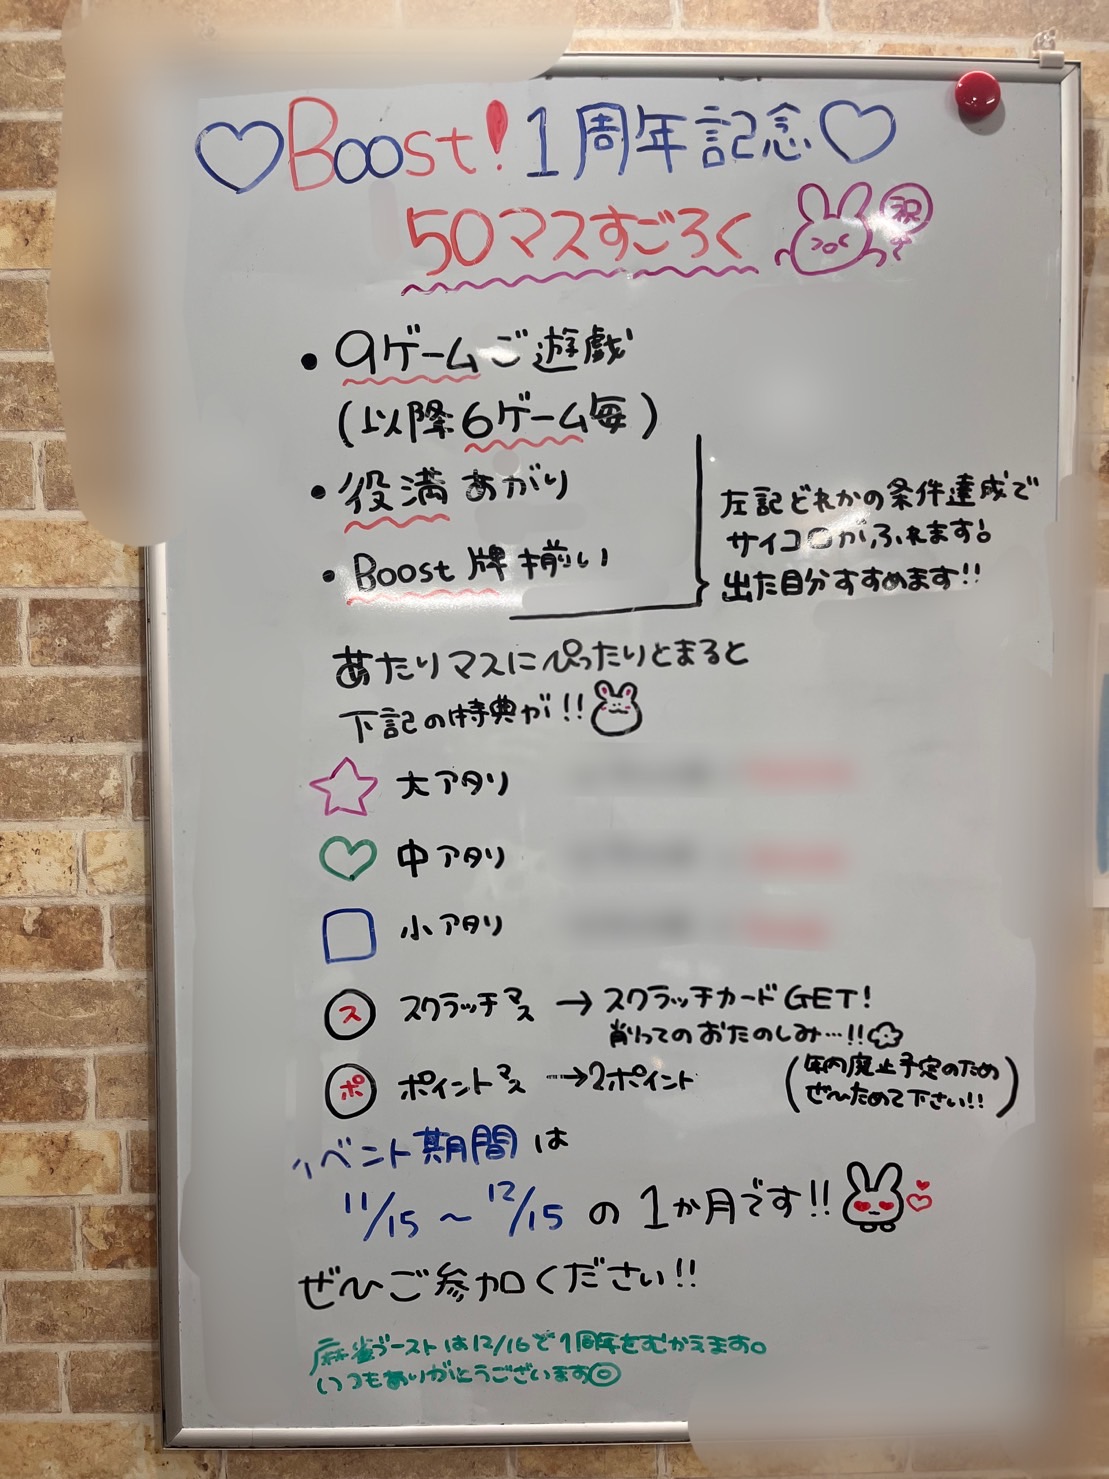 ♡Boost!1周年記念♡
50マスすごろく
祝
・9ゲームご遊戯
(以降6ゲーム毎)
・役満あがり
・Boost牌揃い
左記どれかの条件達成で
サイコロがふれます!
出た目分すすめます!!
あたりマスにぴったりとまると
下記の特典が!!
☆ 大アタリ
♡ 中アタリ
□ 小アタリ
ス スクラッチマス → スクラッチカードGET!
削ってのおたのしみ…!!
ポ ポイントマス →2ポイント
(年内廃止予定のため
ぜひためて下さい!!)
イベント期間は
11/15~12/15の1か月です!!
ぜひご参加ください!!
麻雀ブーストは12/16で1周年をむかえます。
いつもありがとうございます◎